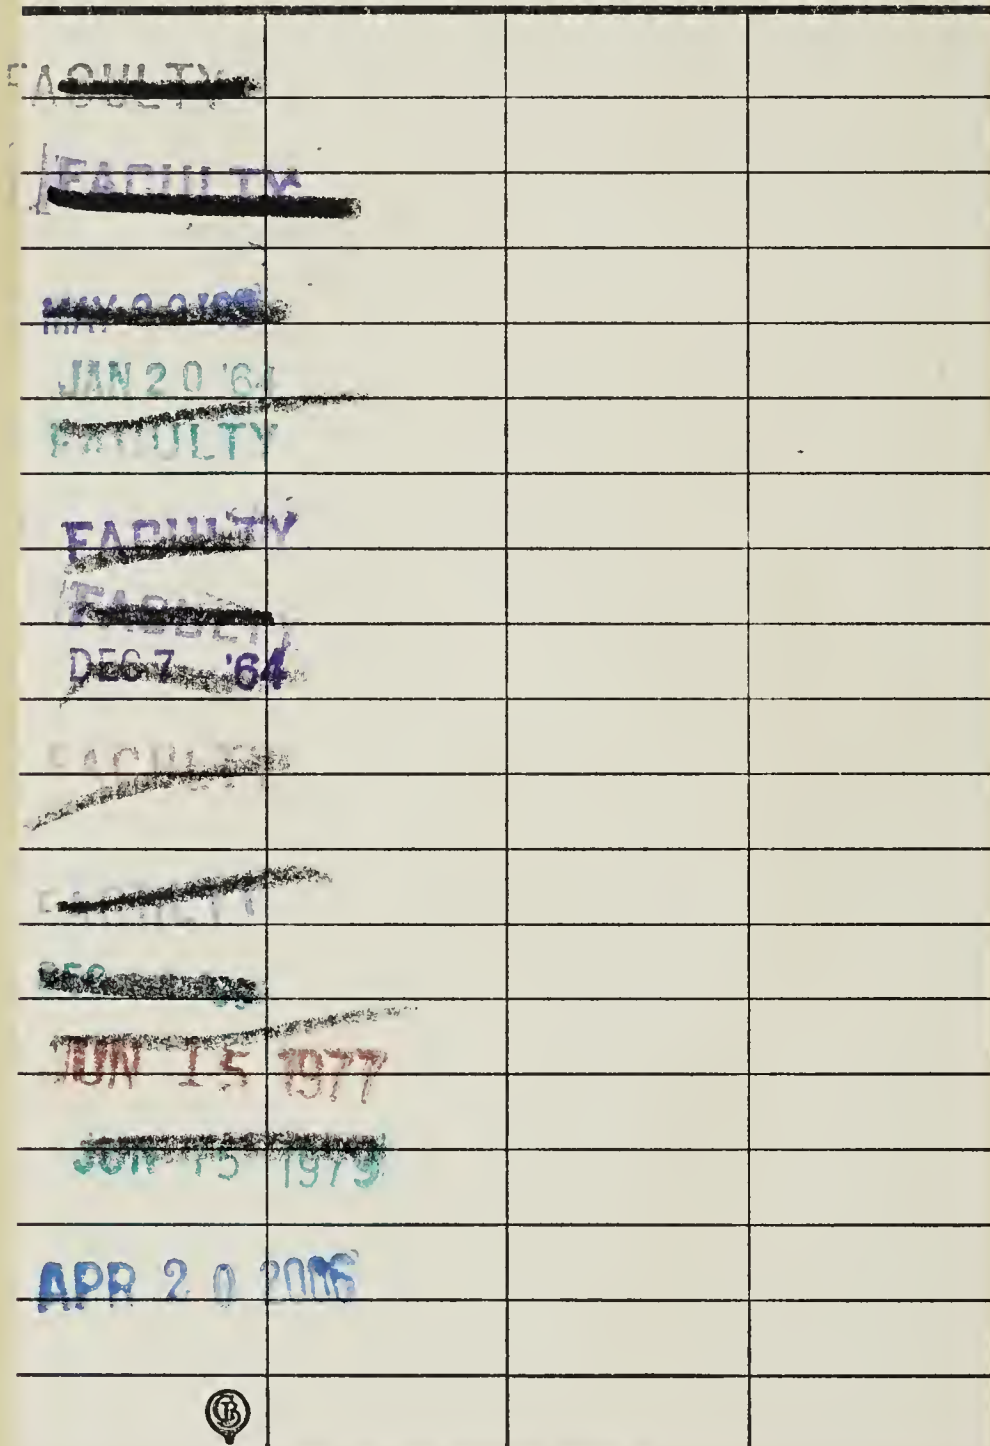 FACULTY
FACULTY
MAY
JAN 20 '64
FACULTY
FACULTY
FACULTY
DEC 7 '64
FACULTY
FACULTY
JUN 15 1977
JUN 15 1979
APR 20 2006